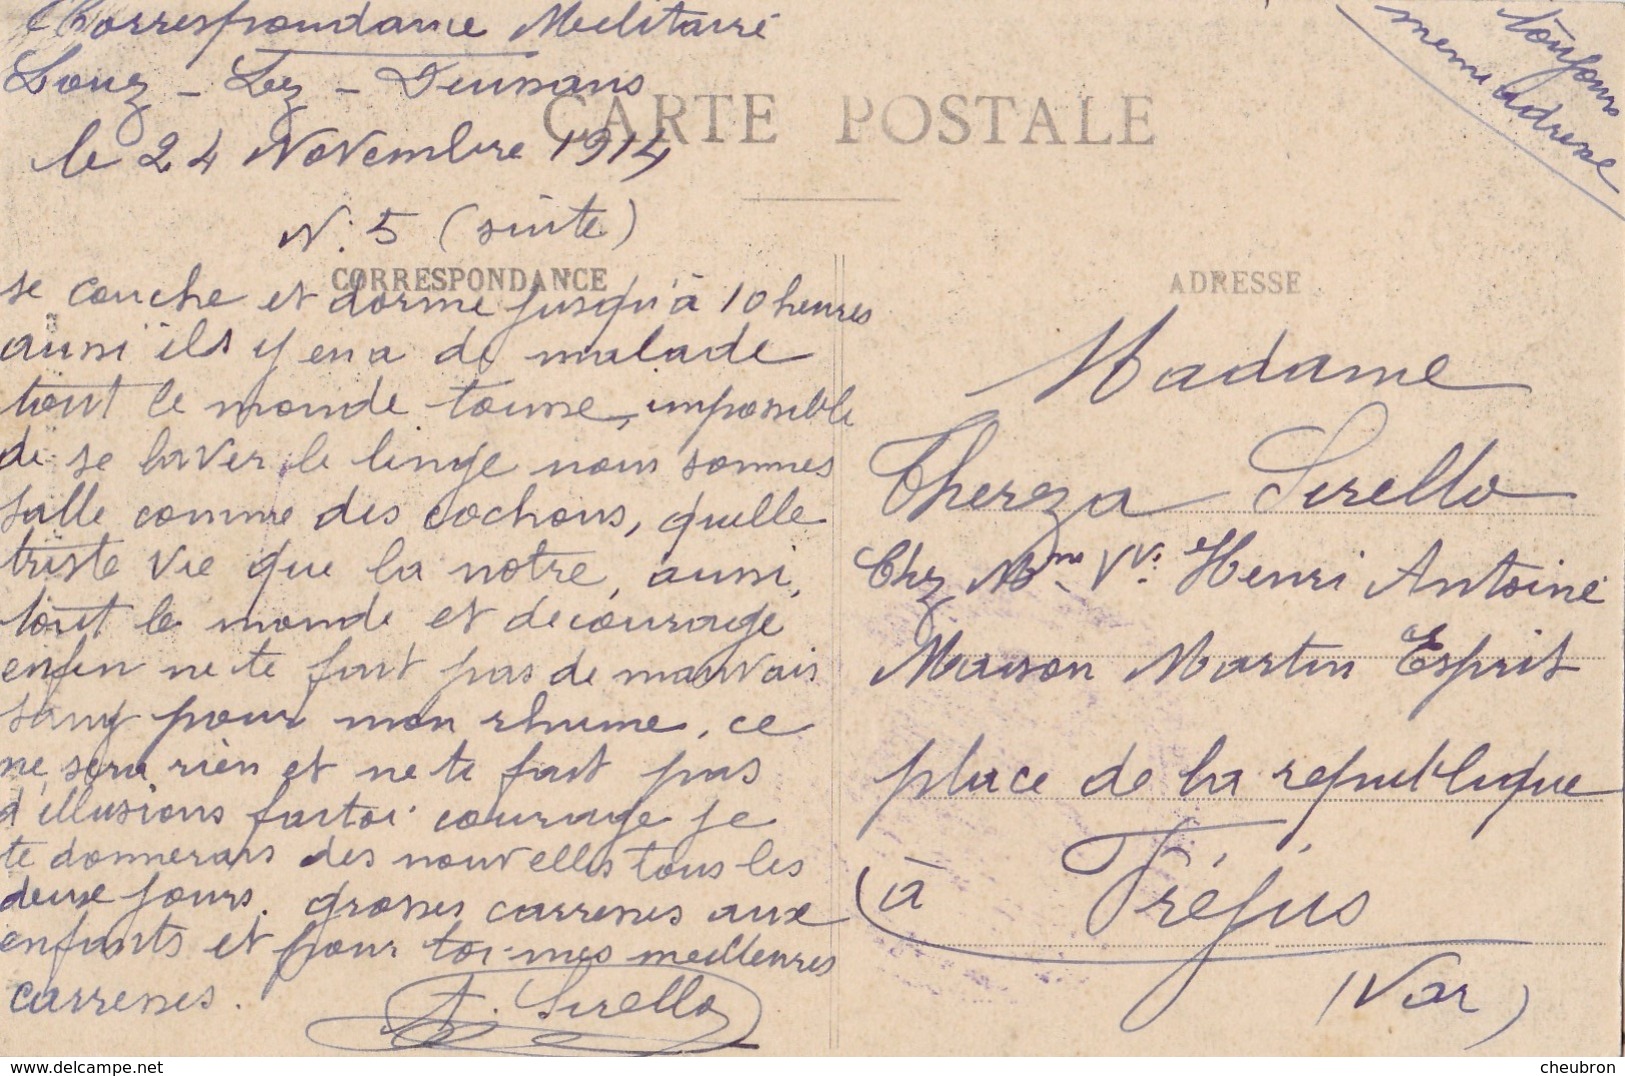 Correspondance Militaire
Louz - Lez - Duisans
le 24 Novembre 1914
toujours
meme adresse
CARTE POSTALE
N. 5 (suite)
CORRESPONDANCE
se couche et dorme jusqu'à 10 heures
aussi ils y en a de malade
tout le monde tousse, impossible
de se laver le linge nous sommes
salle comme des cochons, quelle
triste vie que la notre, aussi,
tout le monde et decourage
enfin ne te fait pas de mauvais
sang pour mon rhume, ce
ne sera rien et ne te fait pas
d'illusions fartoi courage je
te donnerais des nouvelles tous les
deux jours. grosses carresses aux
enfants et pour toi mes meilleures
carresses.
A. Sirello
ADRESSE
Madame
Thereza Sirello
Chez Mme Vve Henri Antoine
Maison Martin Esprit
place de la republique
à Fréjus
(Var)
www.delcampe.net
cheubron